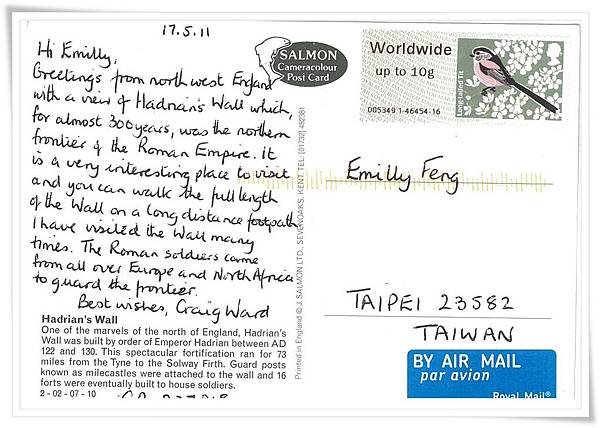 17.5.11
Hi Emilly,
Greetings from north west England
with a view of Hadrian's Wall which,
for almost 300 years, was the northern
frontier of the Roman Empire. It
is a very interesting place to visit
and you can walk the full length
of the Wall on a long distance footpath
I have visited the Wall many
times. The Roman soldiers came
from all over Europe and North Africa
to guard the frontier.
Best wishes, Craig Ward
Hadrian's Wall
One of the marvels of the north of England, Hadrian's
Wall was built by order of Emperor Hadrian between AD
122 and 130. This spectacular fortification ran for 73
miles from the Tyne to the Solway Firth. Guard posts
known as milecastles were attached to the wall and 16
forts were eventually built to house soldiers.
2 - 02 - 07 - 10
SALMON
Cameracolour
Post Card
Printed in England © J. SALMON LTD., SEVENOAKS, KENT. TEL: (01732) 452381
Worldwide
up to 10g
005349 1-46454-16
Long-tailed Tit
Emilly Feng
TAIPEI 23582
TAIWAN
BY AIR MAIL
par avion
Royal Mail®